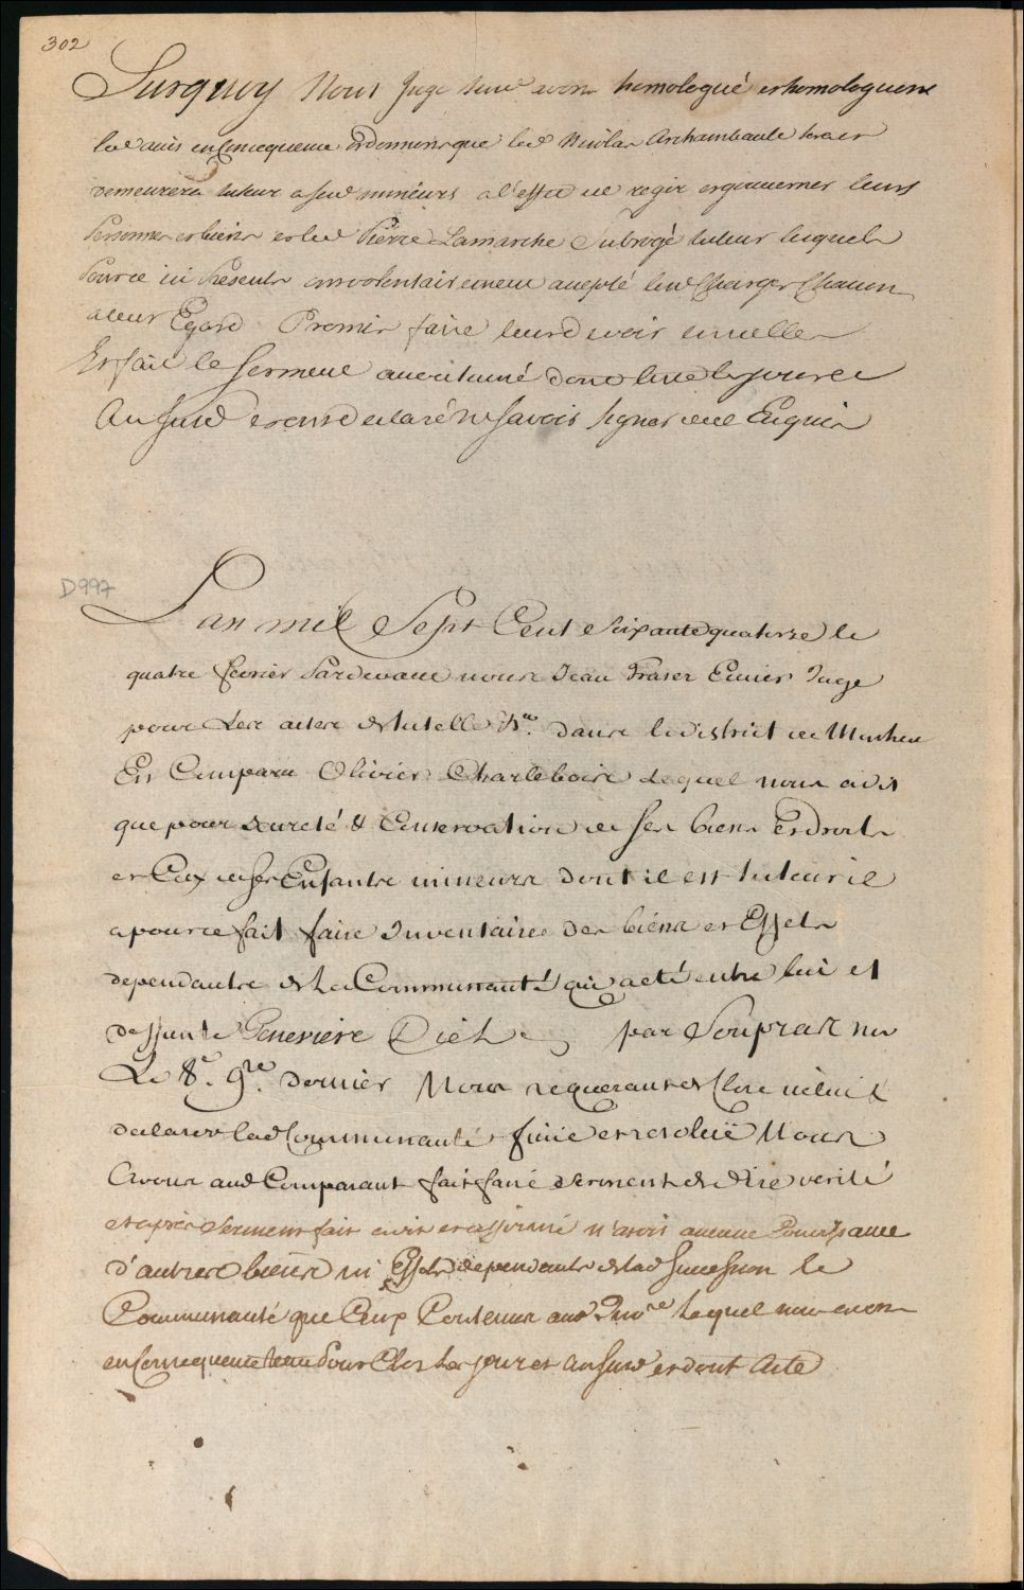 302
Surquoy Nous Juge susd avons homologué et homologuons
led avis en Concequence ordonnons que led Nicolas Archambault sera et
demeurera tuteur a sesd mineurs a l'effet de regir et gouverner leurs
Personnes et biens et led Pierre Lamarche Subrogé tuteur lesquels
Pour ce ici Presents ont volontairement accepté lesd Charges Chacun
a leur Egard Promis faire leur devoir en icelles
Et fait le Serment accoutumé dont acte les jour et
An susd et ont declaré ne savoir signer de ce Enquis
D997
L'an mil Sept Cent Soixante quatorze le
quatre fevrier Pardevant nous Jean Fraser Ecuier Juge
pour Les actes de tutelle &ca. dans le district de
Est Comparu Olivier Charlebois Lequel nous a dit
que pour Sureté & Conservation de ses biens et droits
et Ceux de ses Enfants mineurs dont il est tuteur il
a pour ce fait faire Inventaire des biens et Effets
dependants de La Communauté qui a eté entre lui et
deffunte Genevieve Diel par Souprat nre
Le 8e. 9bre. dernier Nous requerant de Clore icelui &
declarer lad Communauté finie et resoluë Nous
Avons aud Comparant fait faire serment de dire verité
et après Serment fait a dit et affirmé n'avoir aucune Connoissance
d'autres biens ni Effets dependants de lad Succession le
Communauté que Ceux Contenus aud Invre Lequel nous avons
en Concequence tenu Pour Clos Les jour et An susd et dont Acte